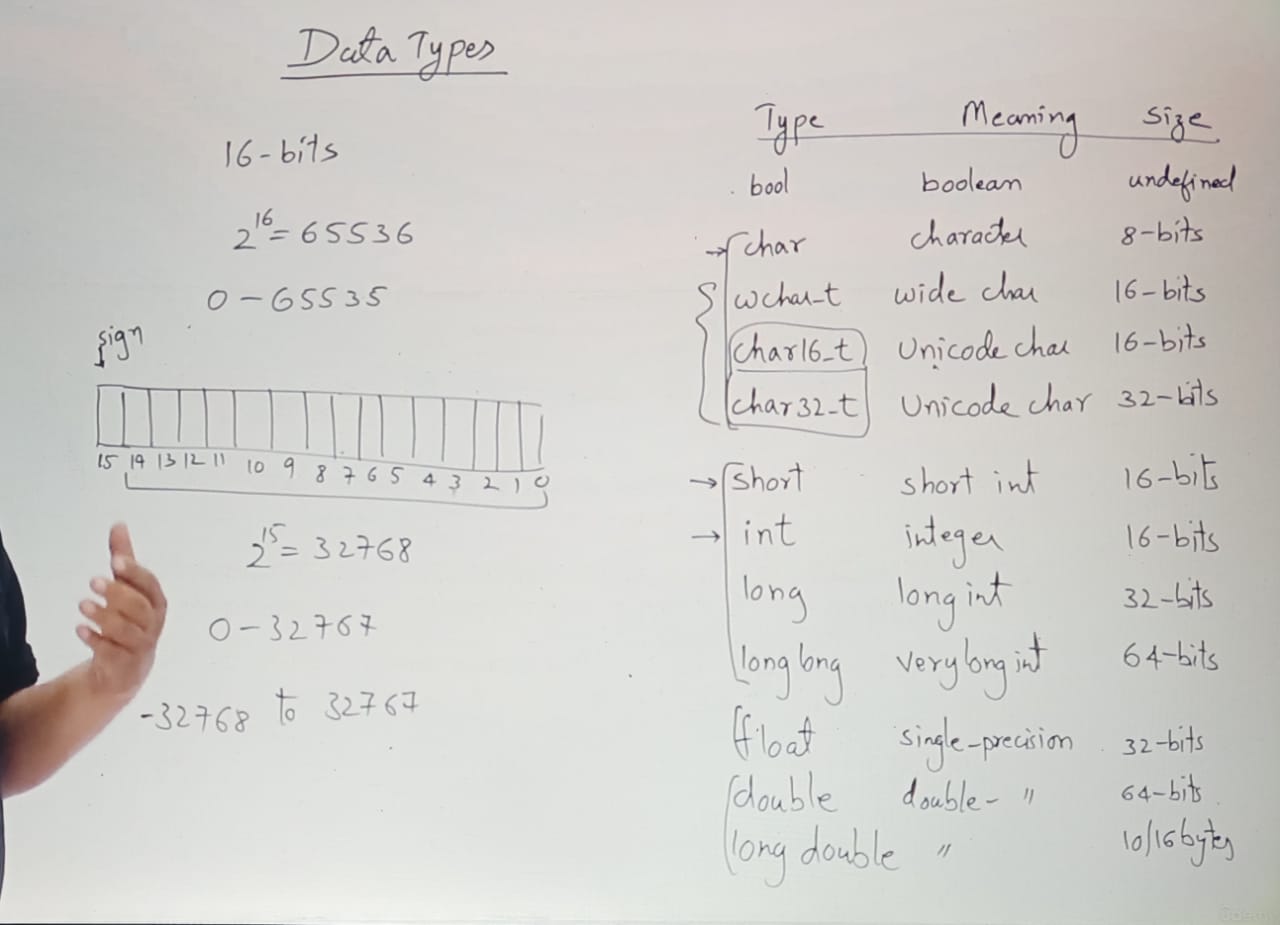 Data Types
16-bits
2^16 = 65536
0 - 65535
sign
15 14 13 12 11 10 9 8 7 6 5 4 3 2 1 0
2^15 = 32768
0 - 32767
-32768 to 32767
Type Meaning Size
bool boolean undefined
char character 8-bits
wchar_t wide char 16-bits
char16_t Unicode char 16-bits
char32_t Unicode char 32-bits
short short int 16-bits
int integer 16-bits
long long int 32-bits
long long very long int 64-bits
float single-precision 32-bits
double double- " 64-bits
long double " 10/16 bytes
Udemy